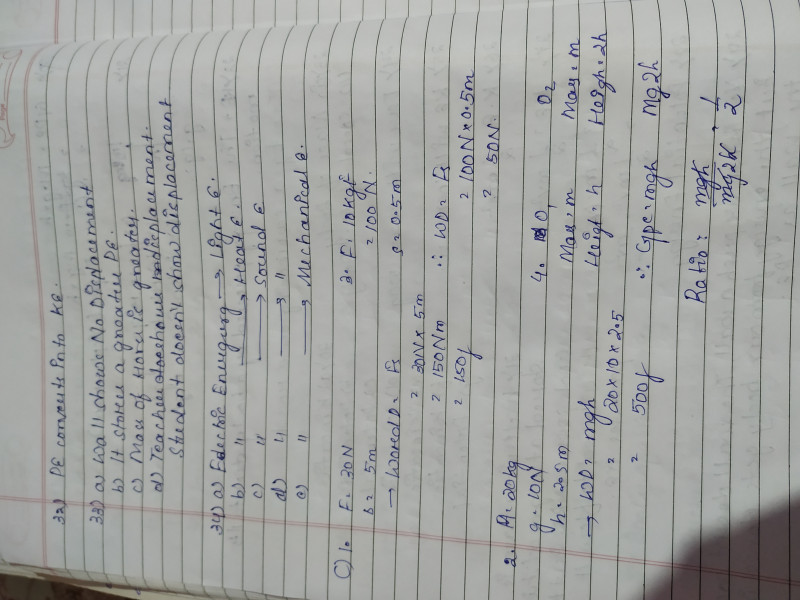 32) PE converts into KE.
33) a) Wall shows No Displacement
b) It stores a greater PE.
c) Mass of Hari is greater.
d) Teacher does shows no displacement.
Student doesn't show displacement
34) a) Electric Energy → Light E.
b) " → Heat E.
c) " → Sound E
d) " → "
e) " → Mechanical E.
C) 1. F = 30N
s = 5m
→ Work D = Fs
= 30N × 5m
= 150Nm
= 150J
2. M = 20kg
g = 10N
h = 2.5m
→ WD = mgh
= 20×10×2.5
= 500J
3. F = 10kgf
= 100N.
s = 0.5m
∴ WD = Fs
= 100N×0.5m
= 50N.
4. O1
Mass = m
Height = h
∴ Gpe = mgh
O2
Mass = m
Height = 2h
Mg2h
Ratio = mgh/mg2h = 1/2